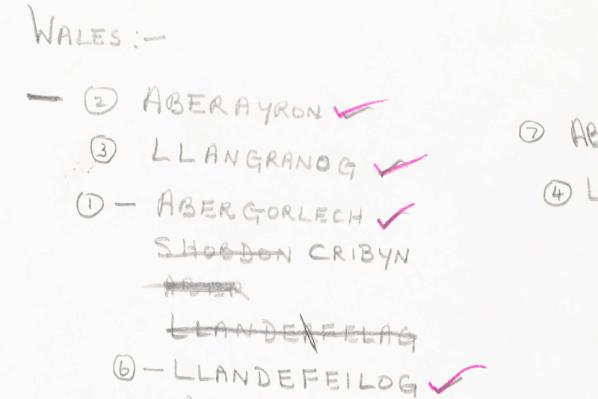 WALES :-
— ② ABERAYRON ✓
③ LLANGRANOG ✓
① — ABERGORLECH ✓
SHOBDON CRIBYN
ABER
LLANDEFELAG
⑥ — LLANDEFEILOG ✓
⑦ AB
④ L